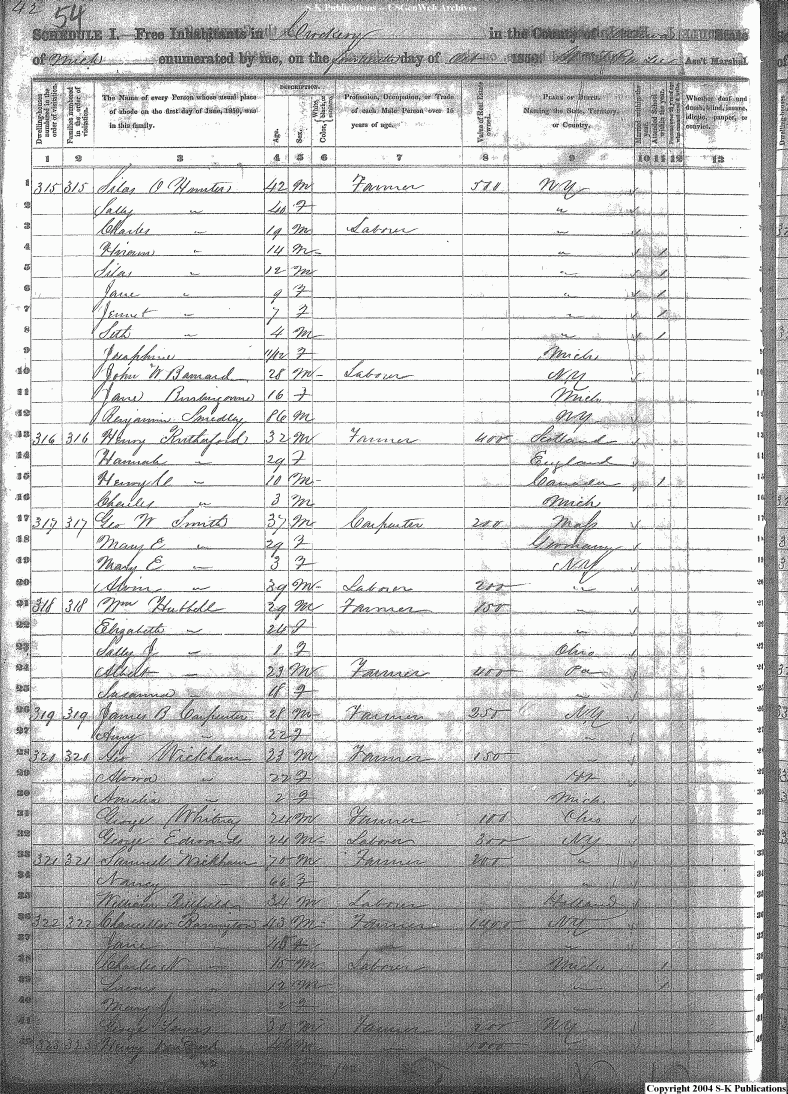 S-K Publications -- USGenWeb Archives
42 54
SCHEDULE I.—Free Inhabitants in Crockery in the County of State
of Mich enumerated by me, on the day of Oct 1850. Ass't Marshal.
Dwelling-houses numbered in the order of visitation. Families numbered in the order of visitation. The Name of every Person whose usual place of abode on the first day of June, 1850, was in this family. DESCRIPTION. Age. Sex. Color Profession, Occupation, or Trade of each Male Person over 15 years of age. Value of Real Estate owned. PLACE OF BIRTH. Naming the State, Territory, or Country. Married within the year. Attended School within the year. Whether deaf and dumb, blind, insane, idiotic, pauper, or convict.
1 2 3 4 5 6 7 8 9 10 11 12 13
1 315 315 Silas O Hunter 42 M Farmer 500 NY
2 Sally " 40 F "
3 Charles " 19 M Laborer "
4 Hiram " 14 M " 1
5 Silas " 12 M " 1
6 Jane " 9 F " 1
7 Jennet " 7 F " 1
8 Seth " 4 M " 1
9 Josephine 11/12 F Mich
10 John W Barnard 28 M Laborer NY
11 Jane 16 F Mich
12 Benjamin Smedley 86 M NY
13 316 316 Henry Rutherford 32 M Farmer 400 Scotland
14 Hannah " 29 F England
15 Henry " 10 M Canada 1
16 Charles " 3 M Mich
17 317 317 Geo W Smith 37 M Carpenter 200 Mass
18 Mary E " 29 F Germany
19 Mary E " 3 F NY
20 Alvin " 39 M Laborer 200 "
21 318 318 Wm Hubbell 29 M Farmer 150 "
22 Elizabeth " 24 F "
23 Sally J " 1 F Ohio
24 Albert " 23 M Farmer 400 Pa
25 Susanna " 18 F "
26 319 319 James B Carpenter 28 M Farmer 250 NY
27 Amy " 22 F "
28 320 320 Geo Wickham 23 M Farmer 150 "
29 " 22 F Vt
30 Amelia " 2 F Mich
31 George Whitney 24 M Farmer 100 Ohio
32 George Edwards 24 M Laborer 300 NY
33 321 321 Samuel Wickham 70 M Farmer 200 "
34 Nancy " 66 F "
35 William 34 M Laborer Holland
36 322 322 Chancellor Barrington 43 M Farmer 1400 NY
37 Jane F "
38 Charles N " 15 M Laborer Mich 1
39 " 12 M " 1
40 Mary J " 2 F
41 George 30 M Farmer 200 NY
42 323 323 Henry 46 M " 1000 "
Copyright 2004 S-K Publications